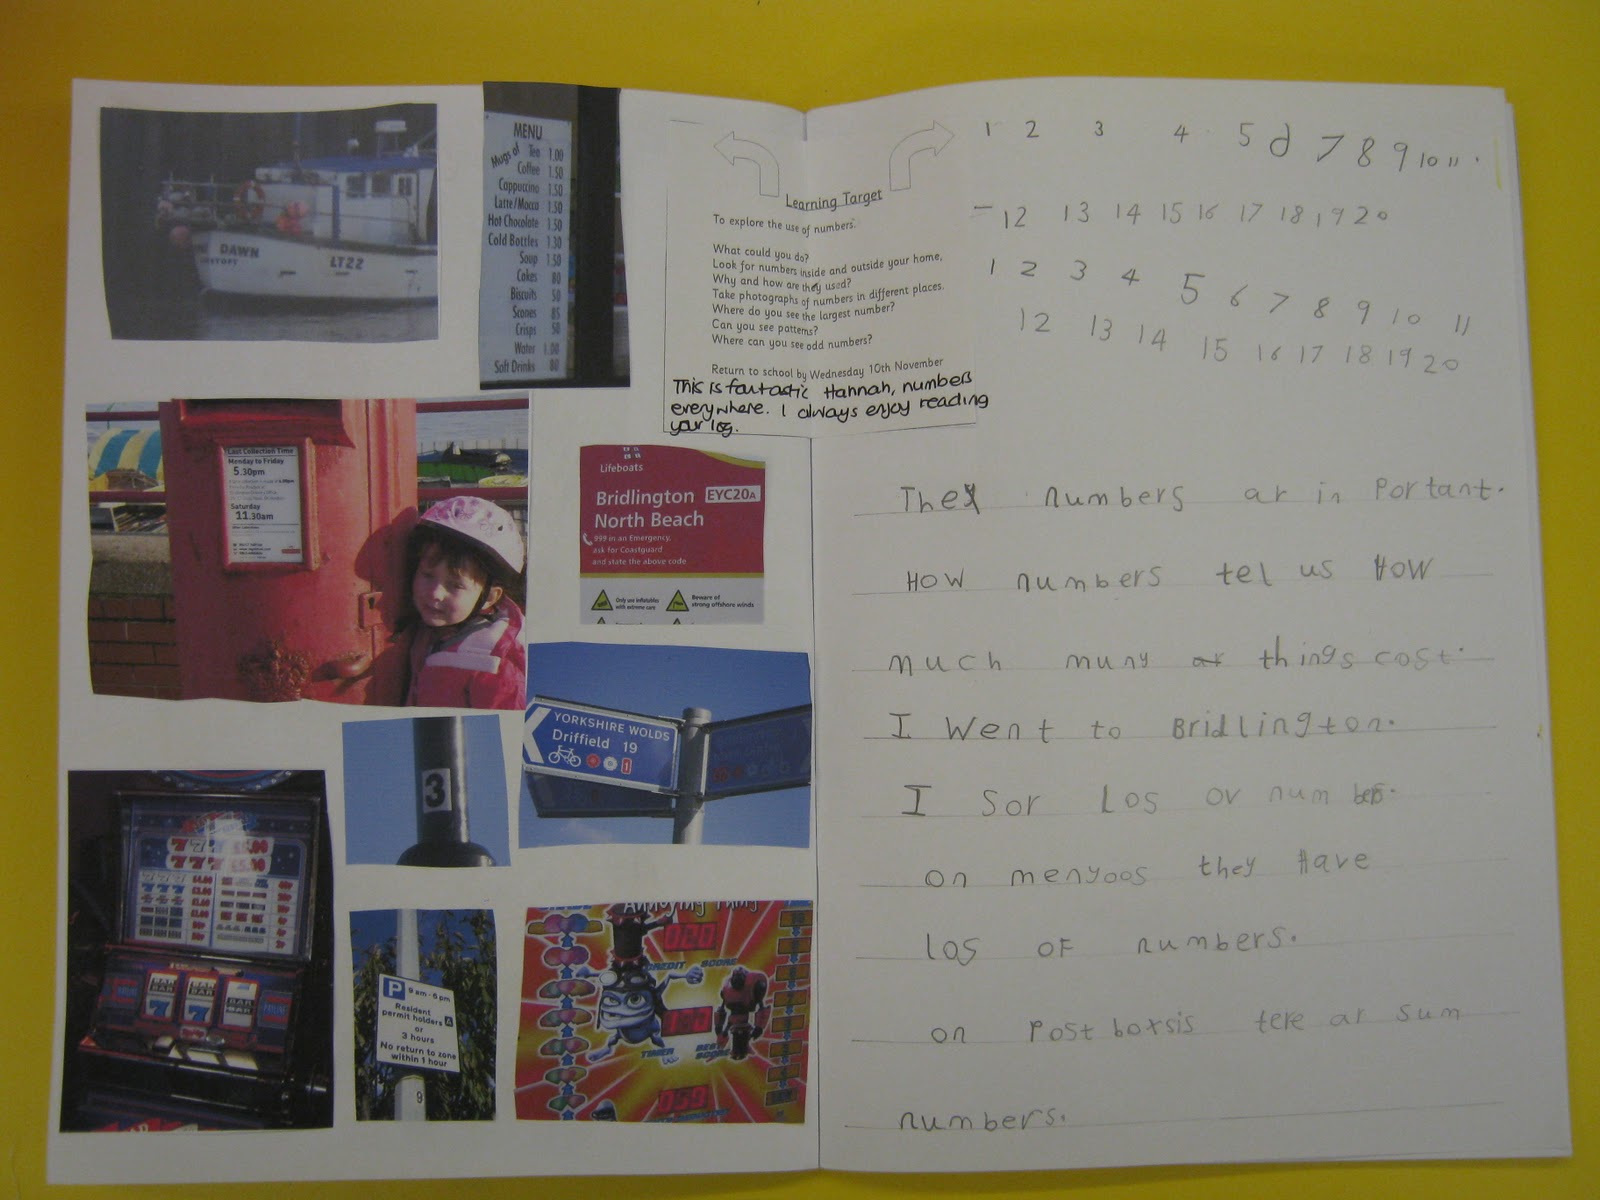 DAWN
LT22
MENU
Mugs of Tea 1.00
Coffee 1.50
Cappuccino 1.50
Latte/Mocca 1.50
Hot Chocolate 1.50
Cold Bottles 1.30
Soup 1.50
Cakes 80
Biscuits 50
Scones 85
Crisps 50
Water 1.00
Soft Drinks 80
Learning Target
To explore the use of numbers.
What could you do?
Look for numbers inside and outside your home.
Why and how are they used?
Take photographs of numbers in different places.
Where do you see the largest number?
Can you see patterns?
Where can you see odd numbers?
Return to school by Wednesday 10th November
This is fantastic Hannah, numbers
everywhere. I always enjoy reading
your log.
Last Collection Time
Monday to Friday
5.30pm
Saturday
11.30am
Lifeboats
Bridlington EYC20A
North Beach
999 in an Emergency,
ask for Coastguard
and state the above code
Only use inflatables
with extreme care
Beware of
strong offshore winds
YORKSHIRE WOLDS
Driffield 19
1
3
7 7 7 £5.00
BAR
BAR
7
P 9 am - 6 pm
Resident
permit holders A
or
3 hours
No return to zone
within 1 hour
9
Annoying Thing
020
CREDIT SCORE
TIMER BEST SCORE
059
1 2 3 4 5 6 7 8 9 10 11
12 13 14 15 16 17 18 19 20
1 2 3 4 5 6 7 8 9 10 11
12 13 14 15 16 17 18 19 20
They numbers ar in Portant.
HOW numbers tel us HOW
much muny ar things cost.
I Went to Bridlington.
I Sor Los ov numbers.
on menyoos they Have
los OF numbers.
on Post boxsis tere ar sum
numbers.